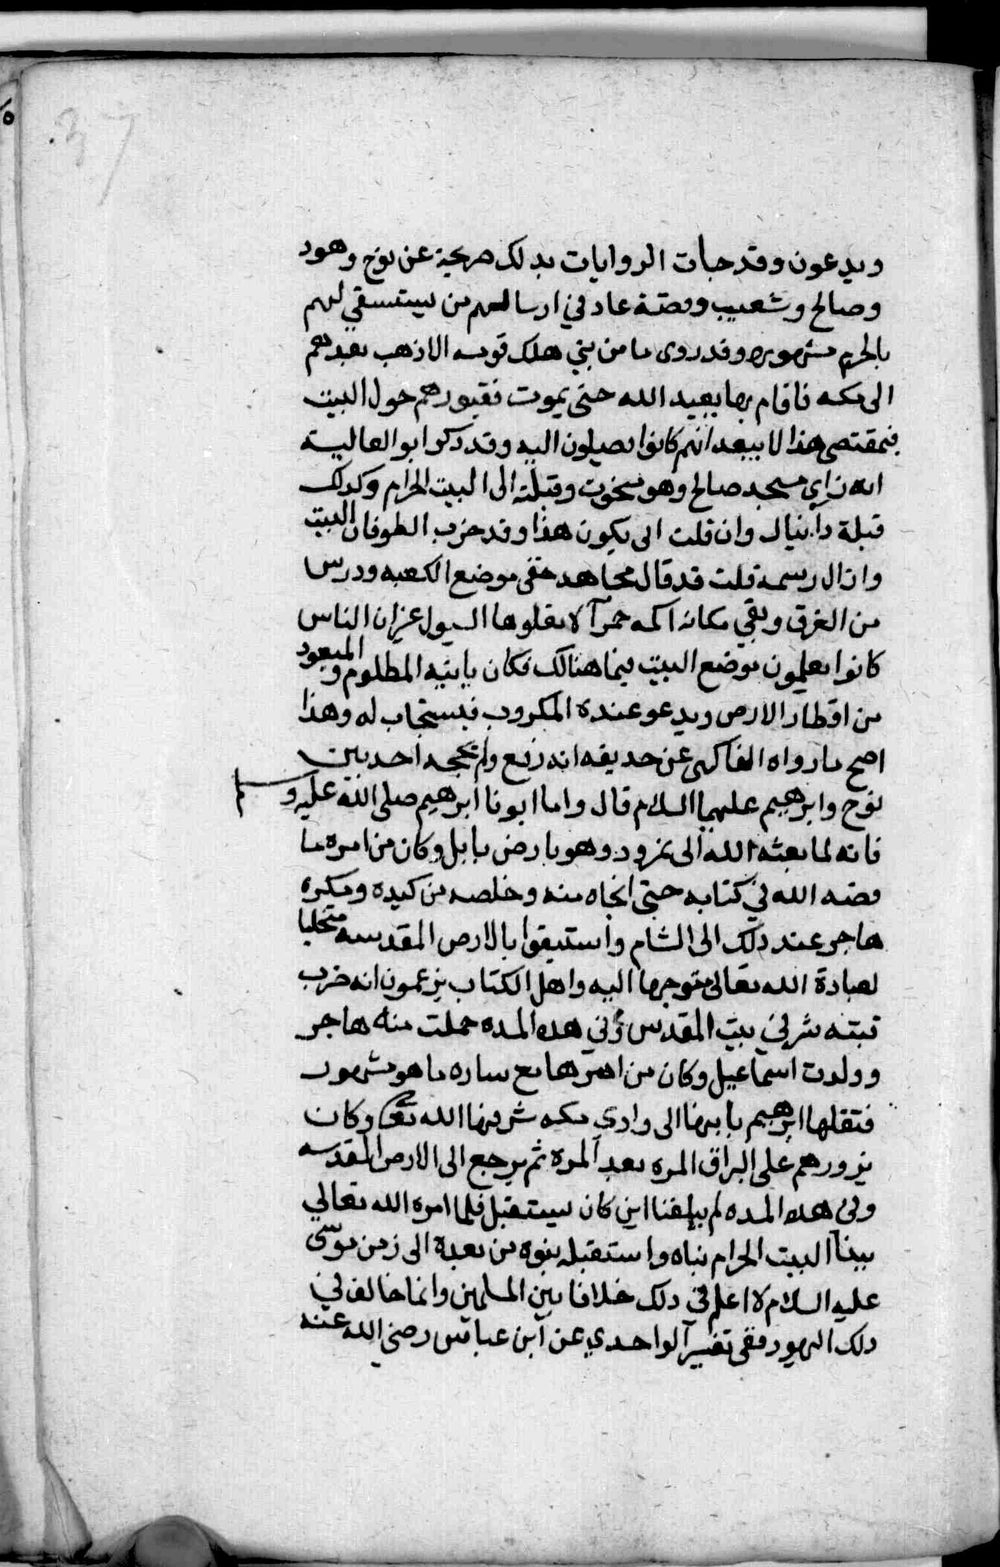 37
ويدعون وقد جات الروايات بدلك صريحة عن نوح وهود
وصالح وشعيب وقصة عاد في ارسالهم من يستسقي لهم
بالحرم مشهوره وقد روى ما من نبي هلك قومه الا ذهب بعدهم
الى مكه فاقام بها يعبد الله حتى يموت فقبورهم حول البيت
فمقتضى هذا لا يبعد انهم كانوا يصلون اليه وقد ذكر ابو العالية
انه راي مسجد صالح وهو منحوت وقبلته الى البيت الحرام وكدلك
قبلة دانيال وان قلت انى يكون هذا وقد خرب الطوفان البيت
وازال رسمه قلت قد قال مجاهد خفى موضع الكعبه ودرس
من الغرق وبقي مكانه اكمه حمرآ لا تعلوها السيول غير ان الناس
كانوا يعلمون موضع البيت فيما هنالك فكان ياتيه المظلوم والمبعود
من اقطار الارض ويدعو عنده المكروب فيستجاب له وهذا
اصح ما رواه الفاكهى عن حديفه انه رفع ولم يحجه احد بين
نوح وابرهيم عليهما السلام قال واما ابونا ابرهيم صلى الله عليه وسلم
فانه لما بعثه الله الى نمرود وهو بارض بابل وكان من امره ما
قصه الله في كتابه حتى انجاه منه وخلصه من كيده ومكره
هاجر عند دلك الى الشام واستبقوا بالارض المقدسه متخليا
لعبادة الله تعالى متوجها اليه واهل الكتاب يزعمون انه ضرب
قبته شرقي بيت المقدس وفي هده المده حملت منه هاجر
وولدت اسماعيل وكان من امرها مع ساره ما هو مشهور
فنقلها ابرهيم بابنها الى وادي مكه شرفها الله تعالى وكان
يزورهم على البراق المره بعد المرة ثم يرجع الى الارض المقدسه
وفي هده المده لم يبلغنا اين كان يستقبل فلما امره الله تعالي
ببنآ البيت الحرام بناه واستقبله بنوه من بعده الى زمن موسى
عليه السلام لا اعلم في دلك خلافا بين المسلمين وانما خالف في
دلك اليهود ففي تفسير الواحدي عن ابن عباس رضي الله عنه